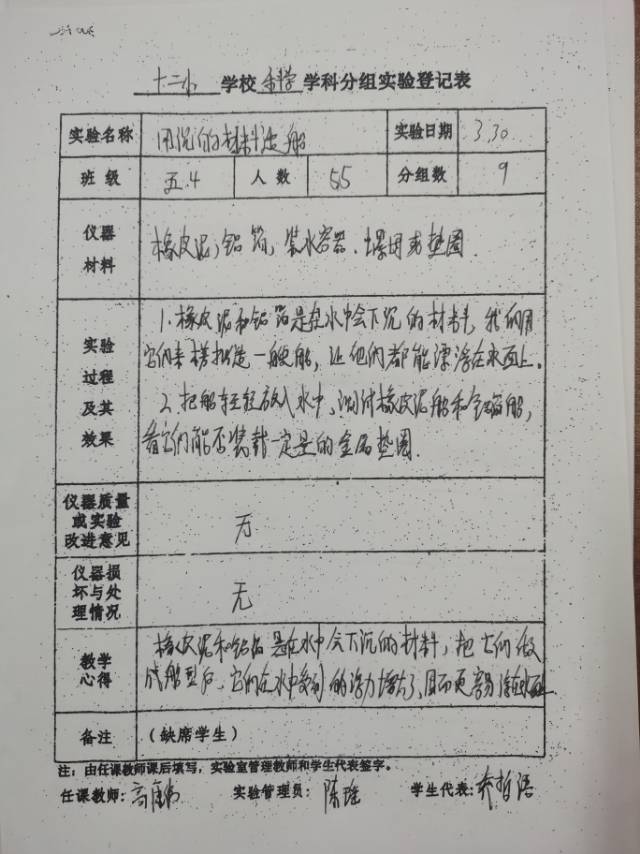 十二小 学校 科学 学科分组实验登记表
实验名称 用沉的材料造船 实验日期 3.30
班级 五.4 人数 55 分组数 9
仪器材料 橡皮泥,铝箔,装水容器.螺母或垫圈.
实验过程及其效果
1.橡皮泥和铝箔是在水中会下沉的材料,我们用
它们来模拟造一艘船,让他们都能漂浮在水面上。
2.把船轻轻放入水中,测试橡皮泥船和铝箔船,
看它们能否装载一定量的金属垫圈.
仪器质量或实验改进意见 无
仪器损坏与处理情况 无
教学心得
橡皮泥和铝箔是在水中会下沉的材料,把它们做
成船型后,它们在水中受到的浮力增大了,且而更容易浮在水面上
备注 (缺席学生)
注:由任课教师课后填写,实验室管理教师和学生代表签字。
任课教师: 实验管理员:陈瑶 学生代表:乔哲语